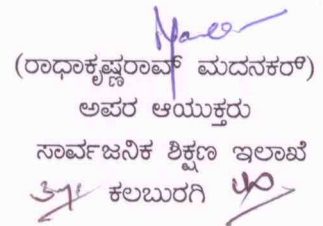 (ರಾಧಾಕೃಷ್ಣರಾವ್ ಮದನಕರ್)
ಅಪರ ಆಯುಕ್ತರು
ಸಾರ್ವಜನಿಕ ಶಿಕ್ಷಣ ಇಲಾಖೆ
ಕಲಬುರಗಿ